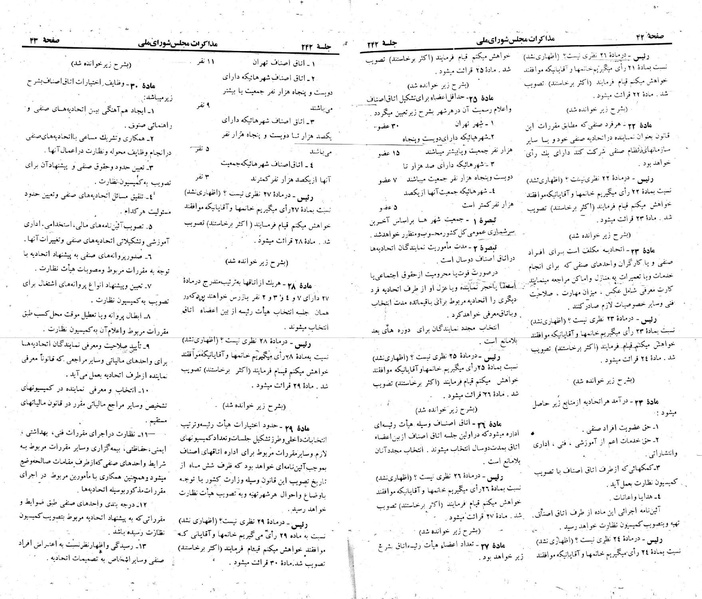 صفحهٔ ۲۲
مذاکرات مجلس شورای ملی
جلسهٔ ۲۲۲
رئیس - درمادهٔ ۲۱ نظری نیست؟ (اظهاری نشد)
نسبت بمادهٔ ۲۱ رأی میگیریم خانمها و آقایانیکه موافقند
خواهش میکنم قیام فرمایند (اکثر برخاستند) تصویب
شد. مادهٔ ۲۲ قرائت میشود.
(بشرح زیر خوانده شد)
مادهٔ ۲۲ - هرفرد صنفی که مطابق مقررات این
قانون بعنوان نماینده در اتحادیه صنفی خود و یا سایر
سازمانهای نظام صنفی شرکت کند دارای یک رأی
خواهد بود.
رئیس - درمادهٔ ۲۲ نظری نیست؟ (اظهاری نشد)
نسبت بمادهٔ ۲۲ رأی میگیریم خانمها و آقایانیکه موافقند
خواهش میکنم قیام فرمایند (اکثر برخاستند) تصویب
شد. مادهٔ ۲۳ قرائت میشود.
(بشرح زیر خوانده شد)
مادهٔ ۲۳ - اتحادیه مکلف است برای افراد
صنفی و یا کارگران واحدهای صنفی که برای انجام
خدمات و یا تعمیرات به منازل و اماکن مراجعه مینمایند
کارت معرفی شامل عکس، میزان مهارت، صلاحیت
فنی و سایر خصوصیات لازم صادر کنند.
رئیس - درمادهٔ ۲۳ نظری نیست؟ (اظهاری نشد)
نسبت بمادهٔ ۲۳ رأی میگیریم خانمها و آقایانیکه موافقند
خواهش میکنم قیام فرمایند (اکثر برخاستند) تصویب
شد. مادهٔ ۲۴ قرائت میشود.
(بشرح زیر خوانده شد)
مادهٔ ۲۴ - درآمد هر اتحادیه از منابع زیر حاصل
میشود.
۱- حق عضویت افراد صنفی.
۲- حق خدمات اعم از آموزشی، فنی، اداری
و انتشاراتی.
۳- کمکهائی که از طرف اتاق اصناف با تصویب
کمیسیون نظارت بعمل آید.
۴- هدایا و اعانات.
آئین‌نامه اجرائی این ماده از طرف اتاق اصناف
تهیه و بتصویب کمیسیون نظارت خواهد رسید.
رئیس - درمادهٔ ۲۴ نظری نیست؟ (اظهاری نشد)
نسبت بمادهٔ ۲۴ رأی میگیریم خانمها و آقایانیکه موافقند
خواهش میکنم قیام فرمایند (اکثر برخاستند) تصویب
شد. مادهٔ ۲۵ قرائت میشود.
(بشرح زیر خوانده شد)
مادهٔ ۲۵- حداقل اعضاء برای تشکیل اتاق اصناف
و اعلام رسمیت آن در هر شهر بشرح زیر تعیین میگردد.
۱- شهر تهران ۳۰ عضو
۲- شهرهائیکه دارای دویست و پنجاه
هزار نفر جمعیت و یا بیشتر میباشند ۱۵ عضو
۳- شهرهائیکه دارای صد هزار تا
دویست و پنجاه هزار نفر جمعیت میباشند ۷ عضو
۴- شهرهائیکه جمعیت آنها از یکصد
هزار نفر کمتر است ۵ عضو
تبصرهٔ ۱ - جمعیت شهرها براساس آخرین
سرشماری عمومی کل کشور محسوب و منظور خواهد شد.
تبصرهٔ ۲ - مدت مأموریت نمایندگان اتحادیه‌ها
در اتاق اصناف دو سال است.
در صورت فوت یا محرومیت از حقوق اجتماعی یا
استعفا یا حجر نماینده و یا عزل او از طرف اتحادیه فرد
دیگری را اتحادیه مربوط برای باقیمانده مدت انتخاب
و باتاق معرفی خواهد کرد.
انتخاب مجدد نمایندگان برای دوره‌های بعد
بلامانع است.
رئیس - درمادهٔ ۲۵ نظری نیست؟ (اظهاری نشد)
نسبت بمادهٔ ۲۵ رأی میگیریم خانمها و آقایانیکه موافقند
خواهش میکنم قیام فرمایند (اکثر برخاستند) تصویب
شد. مادهٔ ۲۶ قرائت میشود.
(بشرح زیر خوانده شد)
مادهٔ ۲۶ - اتاق اصناف وسیله هیأت رئیسه‌ای
اداره میشود که در اولین جلسه اتاق اصناف از بین اعضاء
اتاق بمدت دو سال انتخاب میشوند. انتخاب مجدد آنان
بلامانع است.
رئیس - درمادهٔ ۲۶ نظری نیست؟ (اظهاری نشد)
نسبت بمادهٔ ۲۶ رأی میگیریم خانمها و آقایانیکه موافقند
خواهش میکنم قیام فرمایند (اکثر برخاستند) تصویب
شد. مادهٔ ۲۷ قرائت میشود.
(بشرح زیر خوانده شد)
مادهٔ ۲۷ - تعداد اعضاء هیأت رئیسه اتاق بشرح
زیر خواهد بود.
جلسهٔ ۲۲۲
مذاکرات مجلس شورای ملی
صفحهٔ ۲۳
۱- اتاق اصناف تهران ۱۱ نفر
۲- اتاق اصناف شهرهائیکه دارای
دویست و پنجاه هزار نفر جمعیت یا بیشتر
میباشند ۹ نفر
۳- اتاق اصناف شهرهائیکه دارای
یکصد هزار تا دویست و پنجاه هزار نفر
میباشند ۵ نفر
۴- اتاق اصناف شهرهائیکه جمعیت
آنها از یکصد هزار نفر کمترند ۳ نفر
رئیس - درمادهٔ ۲۷ نظری نیست؟ (اظهاری نشد)
نسبت بمادهٔ ۲۷ رأی میگیریم خانمها و آقایانیکه موافقند
خواهش میکنم قیام فرمایند (اکثر برخاستند) تصویب
شد. مادهٔ ۲۸ قرائت میشود.
(بشرح زیر خوانده شد)
مادهٔ ۲۸ - هریک از اتاقها به ترتیب مندرج درمادهٔ
۲۷ دارای ۷ و ۴ و ۳ و ۲ نفر بازرس خواهند بود که در
همان جلسه انتخاب هیأت رئیسه از بین اعضاء اتاق
انتخاب میشوند.
رئیس - درمادهٔ ۲۸ نظری نیست؟ (اظهاری نشد)
نسبت بمادهٔ ۲۸ رأی میگیریم خانمها و آقایانیکه موافقند
خواهش میکنم قیام فرمایند (اکثر برخاستند) تصویب
شد. مادهٔ ۲۹ قرائت میشود.
(بشرح زیر خوانده شد)
مادهٔ ۲۹ - حدود اختیارات هیأت رئیسه و ترتیب
انتخابات داخلی و طرز تشکیل جلسات و تعداد کمیسیونهای
لازم و سایر مقررات مربوط برای اداره اتاقهای اصناف
بموجب آئین‌نامه‌ای خواهد بود که ظرف شش ماه از
تاریخ تصویب این قانون وسیله وزارت کشور با توجه
باوضاع و احوال هر شهر تهیه و به تصویب هیأت نظارت
خواهد رسید.
رئیس - درمادهٔ ۲۹ نظری نیست؟ (اظهاری نشد)
نسبت به ماده ۲۹ رأی می‌گیریم خانمها و آقایانی که
موافقند خواهش میکنم قیام فرمایند (اکثر برخاستند)
تصویب شد. مادهٔ ۳۰ قرائت میشود.
(بشرح زیر خوانده شد)
مادهٔ ۳۰- وظایف و اختیارات اتاق اصناف بشرح
زیر میباشد:
۱- ایجاد هم‌آهنگی بین اتحادیه‌های صنفی و
راهنمائی صنوف.
۲- همکاری و تشریک مساعی با اتحادیه‌های صنفی
در انجام وظایف محوله و نظارت در اعمال آنها.
۳- تعیین حدود و حقوق صنفی و پیشنهاد آن برای
تصویب به کمیسیون نظارت.
۴- تلفیق مسائل اتحادیه‌های صنفی و تعیین حدود
مسئولیت هر کدام.
۵- تصویب آئین‌نامه‌های مالی، استخدامی، اداری
آموزشی و تشکیلاتی اتحادیه‌های صنفی و تغییرات آنها.
۶- صدور پروانه‌های صنفی به پیشنهاد اتحادیه با
توجه به مقررات مربوط و مصوبات هیأت نظارت.
۷- تعیین و پیشنهاد انواع پروانه‌های اشتغال برای
تصویب به کمیسیون نظارت.
۸- ابطال پروانه و یا تعطیل موقت محل کسب طبق
مقررات مربوط و اعلام آن به کمیسیون نظارت.
۹- تأیید صلاحیت و معرفی نمایندگان اتحادیه‌ها
برای واحدهای مالیاتی و سایر مراجعی که قانوناً معرفی
نماینده از طرف اتحادیه بعمل می‌آید.
۱۰- انتخاب و معرفی نماینده در کمیسیونهای
تشخیص و سایر مراجع مالیاتی مقرر در قانون مالیاتهای
مستقیم.
۱۱- نظارت در اجرای مقررات فنی، بهداشتی،
ایمنی، حفاظتی، بیمه‌گزاری و سایر مقررات مربوط به
شرایط واحدهای صنفی که از طرف مقامات صالحه وضع
میشود و همچنین همکاری با مأمورین مربوط در اجرای
مقررات مذکور بوسیله اتحادیه‌ها.
۱۲- درجه بندی واحدهای صنفی طبق ضوابط و
مقرراتی که به پیشنهاد اتحادیه مربوط بتصویب کمیسیون
نظارت رسیده باشد.
۱۳- رسیدگی و اظهارنظر نسبت به اعتراض افراد
صنفی و سایر اشخاص به تصمیمات اتحادیه.